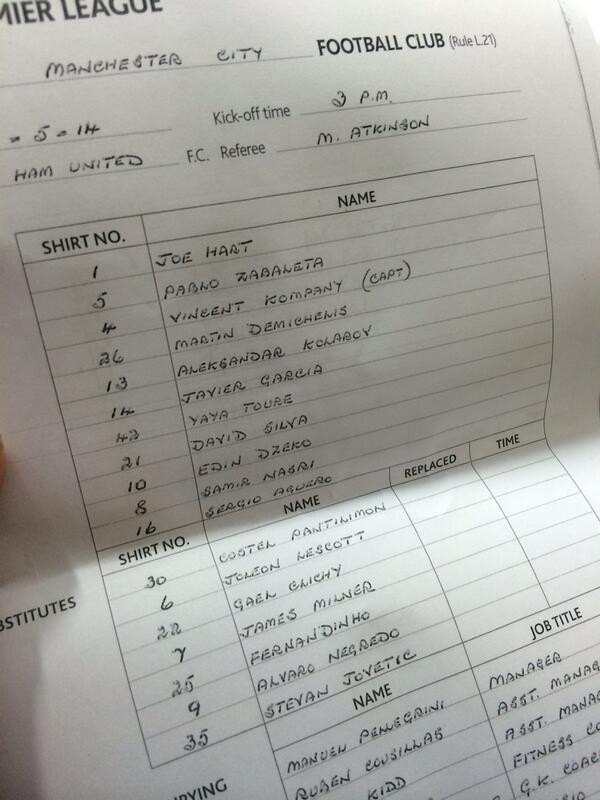 MIER LEAGUE
MANCHESTER CITY FOOTBALL CLUB (Rule L.21)
= 5 = 14 Kick-off time 3 P.M.
HAM UNITED F.C. Referee M. ATKINSON
SHIRT NO. NAME
1 JOE HART
5 PABLO ZABALETA
4 VINCENT KOMPANY (CAPT)
26 MARTIN DEMICHELIS
13 ALEKSANDAR KOLAROV
14 JAVIER GARCIA
42 YAYA TOURE
21 DAVID SILVA
10 EDIN DZEKO
8 SAMIR NASRI
16 SERGIO AGUERO
SHIRT NO. NAME REPLACED TIME
30 COSTEL PANTILIMON
6 JOLEON LESCOTT
22 GAEL CLICHY
7 JAMES MILNER
25 FERNANDINHO
9 ALVARO NEGREDO
35 STEVAN JOVETIC
BSTITUTES
NAME JOB TITLE
MANUEL PELLEGRINI MANAGER
RUBEN COUSILLAS ASST. MANAG
KIDD ASST. MANAG
FITNESS CO
G.K. COAC
UPYING